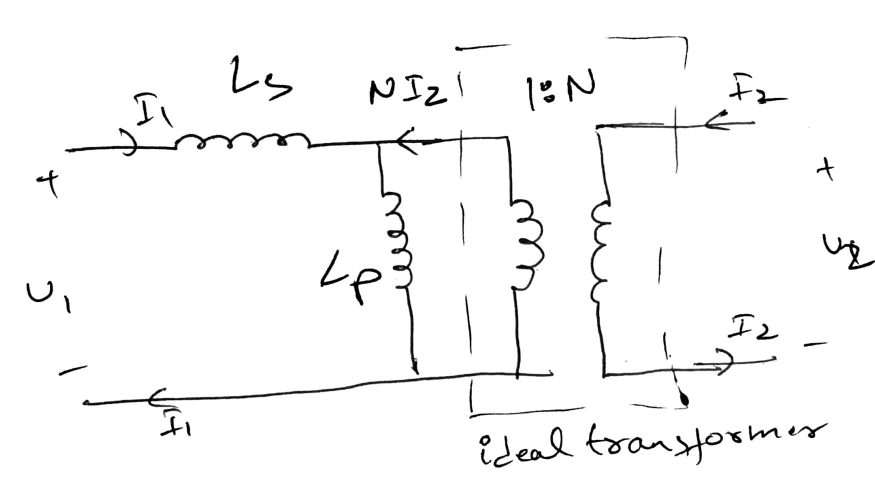 Ls
NI2
1:N
I1
I2
+
+
Lp
U1
U2
-
-
I2
I1
ideal transformer